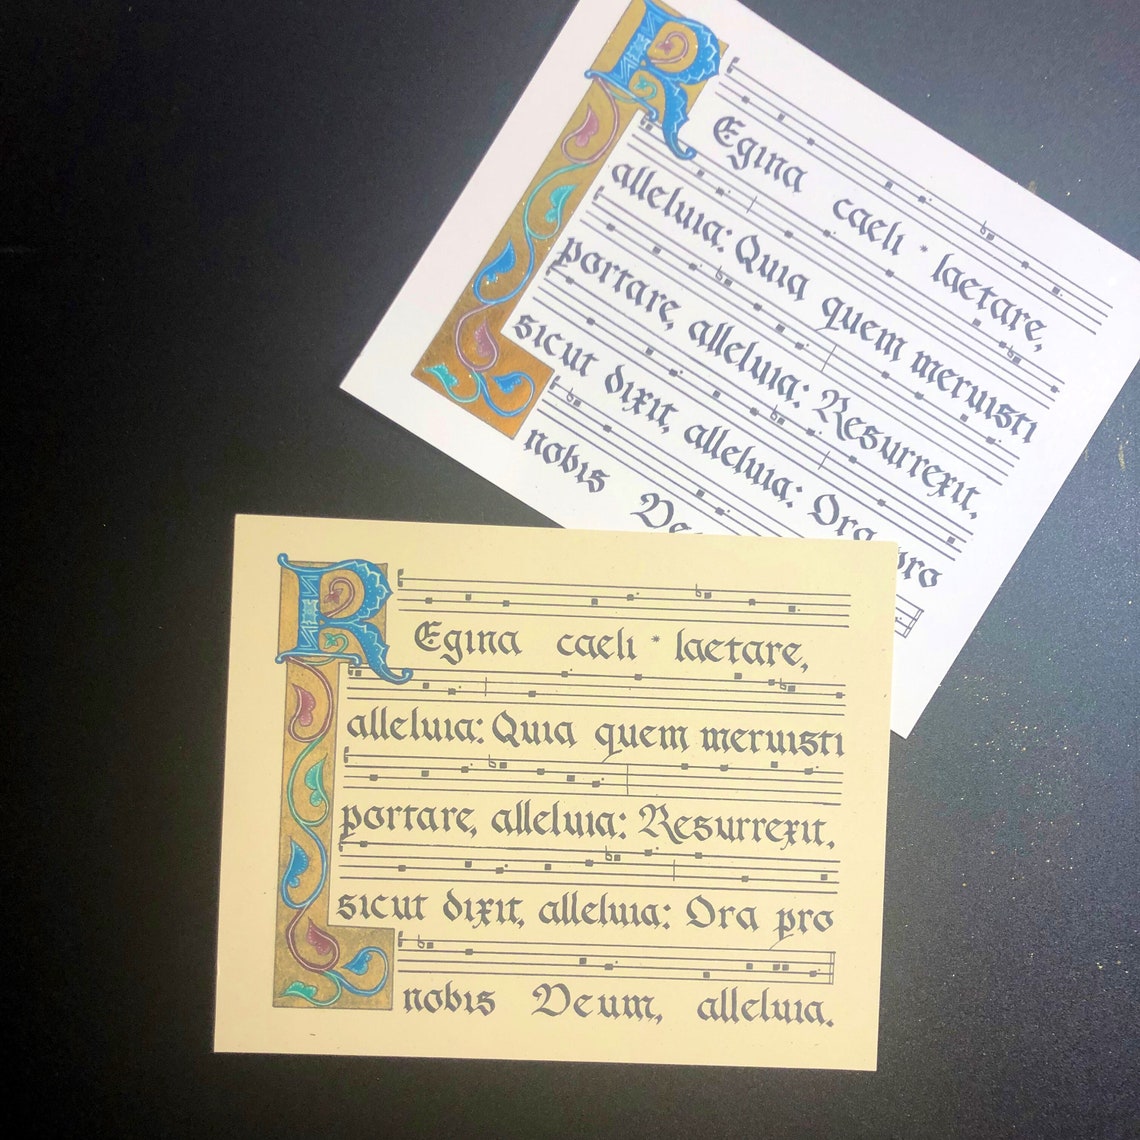 REgina caeli * laetare,
alleluia: Quia quem meruisti
portare, alleluia: Resurrexit,
sicut dixit, alleluia: Ora pro
nobis De
REgina caeli * laetare,
alleluia: Quia quem meruisti
portare, alleluia: Resurrexit,
sicut dixit, alleluia: Ora pro
nobis Deum, alleluia.